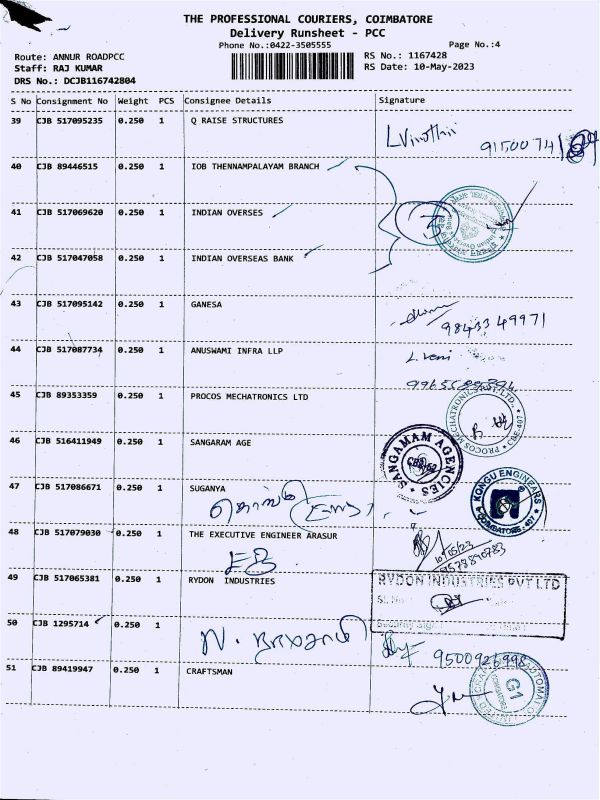 THE PROFESSIONAL COURIERS, COIMBATORE
Delivery Runsheet - PCC
Phone No.:0422-3505555 Page No.:4
Route: ANNUR ROADPCC RS No.: 1167428
Staff: RAJ KUMAR RS Date: 10-May-2023
DRS No.: DCJB116742804
S No Consignment No Weight PCS Consignee Details Signature
39 CJB 517095235 0.250 1 Q RAISE STRUCTURES
L Vinothii
40 CJB 89446515 0.250 1 IOB THENNAMPALAYAM BRANCH
41 CJB 517069620 0.250 1 INDIAN OVERSES
3
42 CJB 517047058 0.250 1 INDIAN OVERSEAS BANK
43 CJB 517095142 0.250 1 GANESA
98433 49971
44 CJB 517087734 0.250 1 ANUSWAMI INFRA LLP L. Veni
45 CJB 89353359 0.250 1 PROCOS MECHATRONICS LTD
PROCOS MECHATRONICS PVT. LTD., CBE-407
46 CJB 516411949 0.250 1 SANGARAM AGE
SANGAMAM AGENCIES
47 CJB 517086671 0.250 1 SUGANYA
KONGU ENGINEARS COIMBATORE - 407
48 CJB 517079030 0.250 1 THE EXECUTIVE ENGINEER ARASUR
EB
10/05/23
49 CJB 517065381 0.250 1 RYDON INDUSTRIES
RYDON INDUSTRIES PVT LTD
Sl. No
Security Sign
50 CJB 1295714 0.250 1
9500926998
51 CJB 89419947 0.250 1 CRAFTSMAN
G1